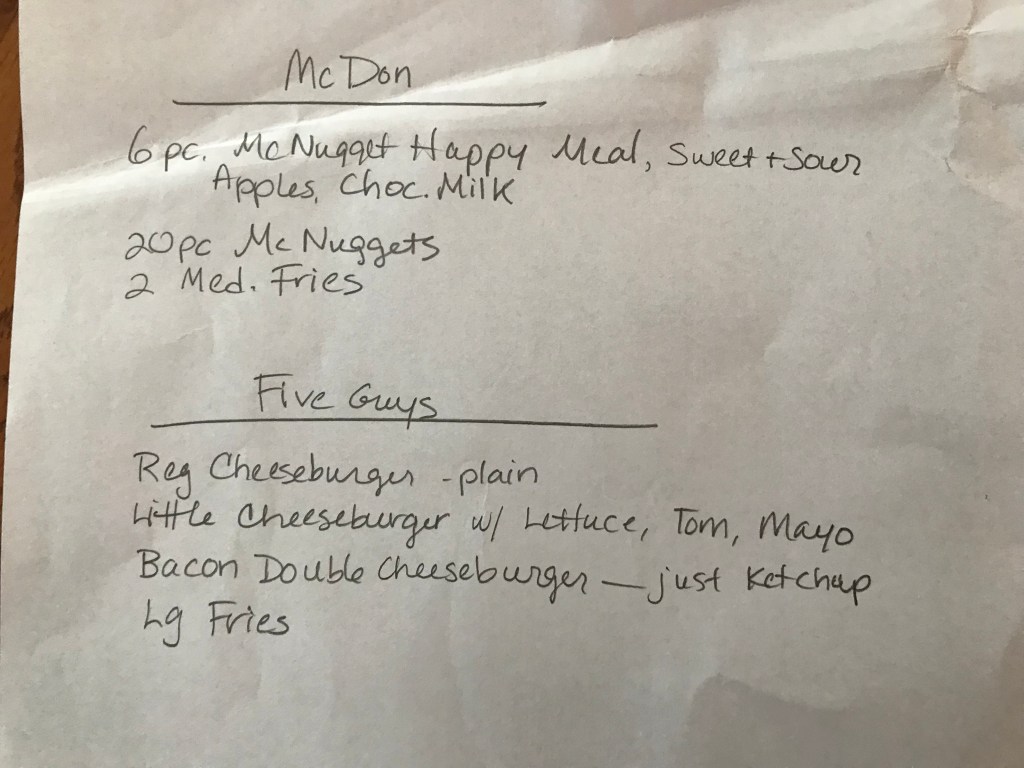 McDon
6 pc. McNugget Happy Meal, Sweet + Sour
Apples, Choc. Milk
20pc McNuggets
2 Med. Fries
Five Guys
Reg Cheeseburger - plain
Little Cheeseburger w/ Lettuce, Tom, Mayo
Bacon Double Cheeseburger — just Ketchup
Lg Fries